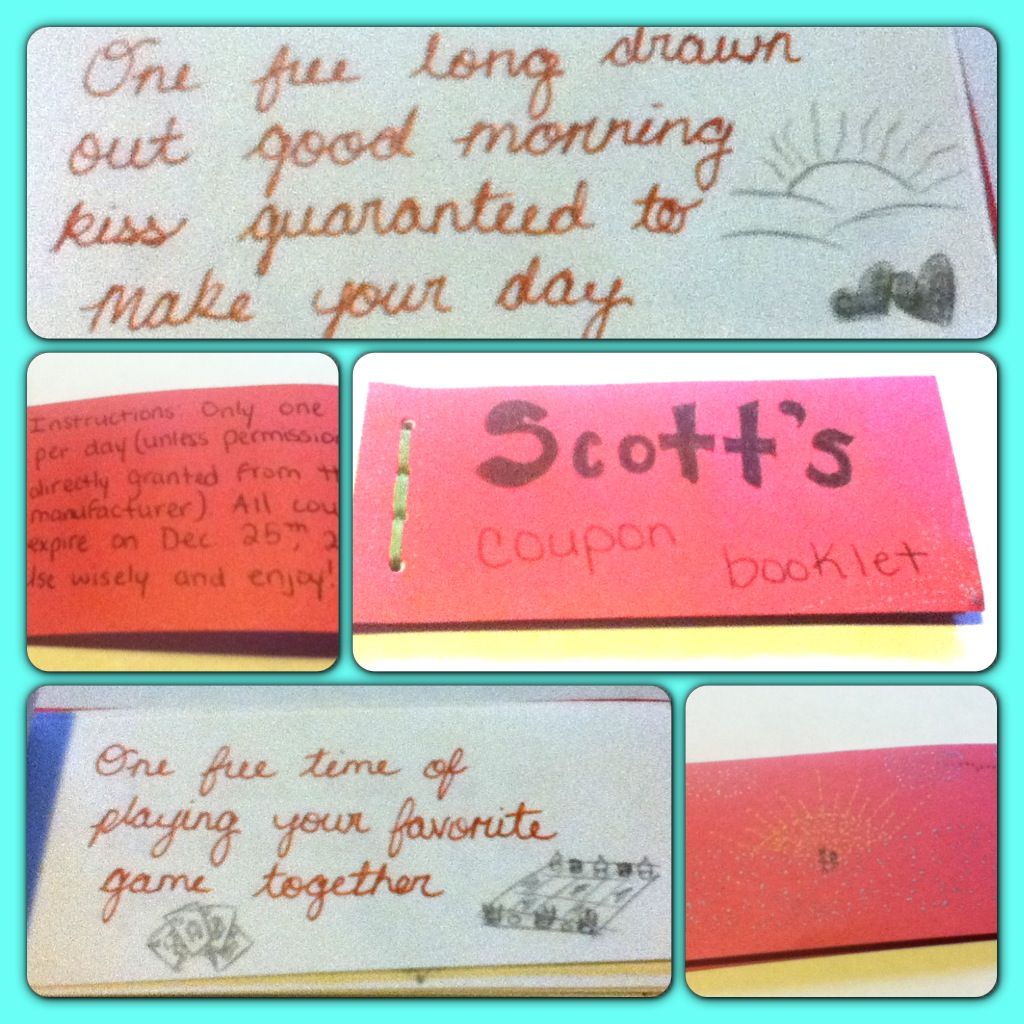 One free long drawn
out good morning
kiss guaranteed to
make your day
Instructions: Only one
per day (unless permission
directly granted from
manufacturer). All
expire on Dec. 25th,
Use wisely and enjoy!
Scott's
coupon booklet
One free time of
playing your favorite
game together